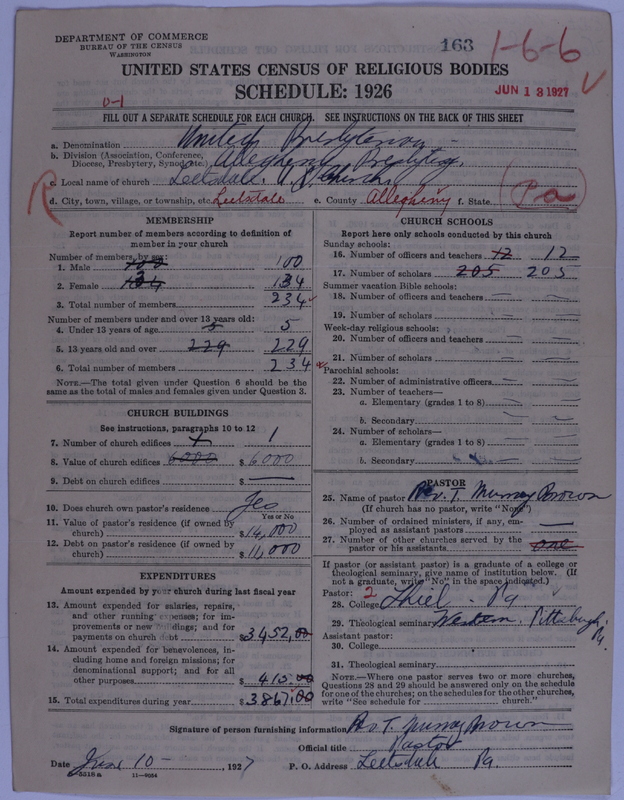 DEPARTMENT OF COMMERCE
BUREAU OF THE CENSUS
WASHINGTON
163
1-6-6
UNITED STATES CENSUS OF RELIGIOUS BODIES
SCHEDULE: 1926
JUN 13 1927
0-1
FILL OUT A SEPARATE SCHEDULE FOR EACH CHURCH. SEE INSTRUCTIONS ON THE BACK OF THIS SHEET
a. Denomination United Presbyterian
b. Division (Association, Conference, Diocese, Presbytery, Synod, etc.) Allegheny Presbytery
c. Local name of church Leetsdale U.P. Church
R
d. City, town, village, or township, etc. Leetsdale e. County Allegheny f. State (Pa)
MEMBERSHIP
Report number of members according to definition of member in your church
Number of members, by sex:
1. Male 100 100
2. Female 134 134
3. Total number of members 234
Number of members under and over 13 years old:
4. Under 13 years of age 5 5
5. 13 years old and over 229 229
6. Total number of members 234
NOTE.—The total given under Question 6 should be the same as the total of males and females given under Question 3.
CHURCH BUILDINGS
See instructions, paragraphs 10 to 12
7. Number of church edifices 1 1
8. Value of church edifices 6000 $ 6000
9. Debt on church edifices $ —
10. Does church own pastor's residence Yes
Yes or No
11. Value of pastor's residence (if owned by church) $ 14,000
12. Debt on pastor's residence (if owned by church) $ 11,000
EXPENDITURES
Amount expended by your church during last fiscal year
13. Amount expended for salaries, repairs, and other running expenses; for improvements or new buildings; and for payments on church debt $ 3452.00
14. Amount expended for benevolences, including home and foreign missions; for denominational support; and for all other purposes $ 415.00
15. Total expenditures during year $ 3867.00
CHURCH SCHOOLS
Report here only schools conducted by this church
Sunday schools:
16. Number of officers and teachers 12 12
17. Number of scholars 205 205
Summer vacation Bible schools:
18. Number of officers and teachers —
19. Number of scholars —
Week-day religious schools:
20. Number of officers and teachers —
21. Number of scholars —
Parochial schools:
22. Number of administrative officers —
23. Number of teachers—
a. Elementary (grades 1 to 8) —
b. Secondary —
24. Number of scholars—
a. Elementary (grades 1 to 8) —
b. Secondary —
PASTOR
25. Name of pastor Rev. T. Murray Brown
(If church has no pastor, write "None")
26. Number of ordained ministers, if any, employed as assistant pastors —
27. Number of other churches served by the pastor or his assistants one
If pastor (or assistant pastor) is a graduate of a college or theological seminary, give name of institution below. (If not a graduate, write "No" in the space indicated.)
Pastor: 2
28. College Thiel - Pa
29. Theological seminary Western, Pittsburgh, Pa.
Assistant pastor:
30. College
31. Theological seminary
NOTE.—Where one pastor serves two or more churches, Questions 28 and 29 should be answered only on the schedule for one of the churches; on the schedules for the other churches, write "See schedule for church."
Signature of person furnishing information Rev. T. Murray Brown
Official title Pastor
Date June 10 - , 1927 P. O. Address Leetsdale Pa.
8318 a 11—9054